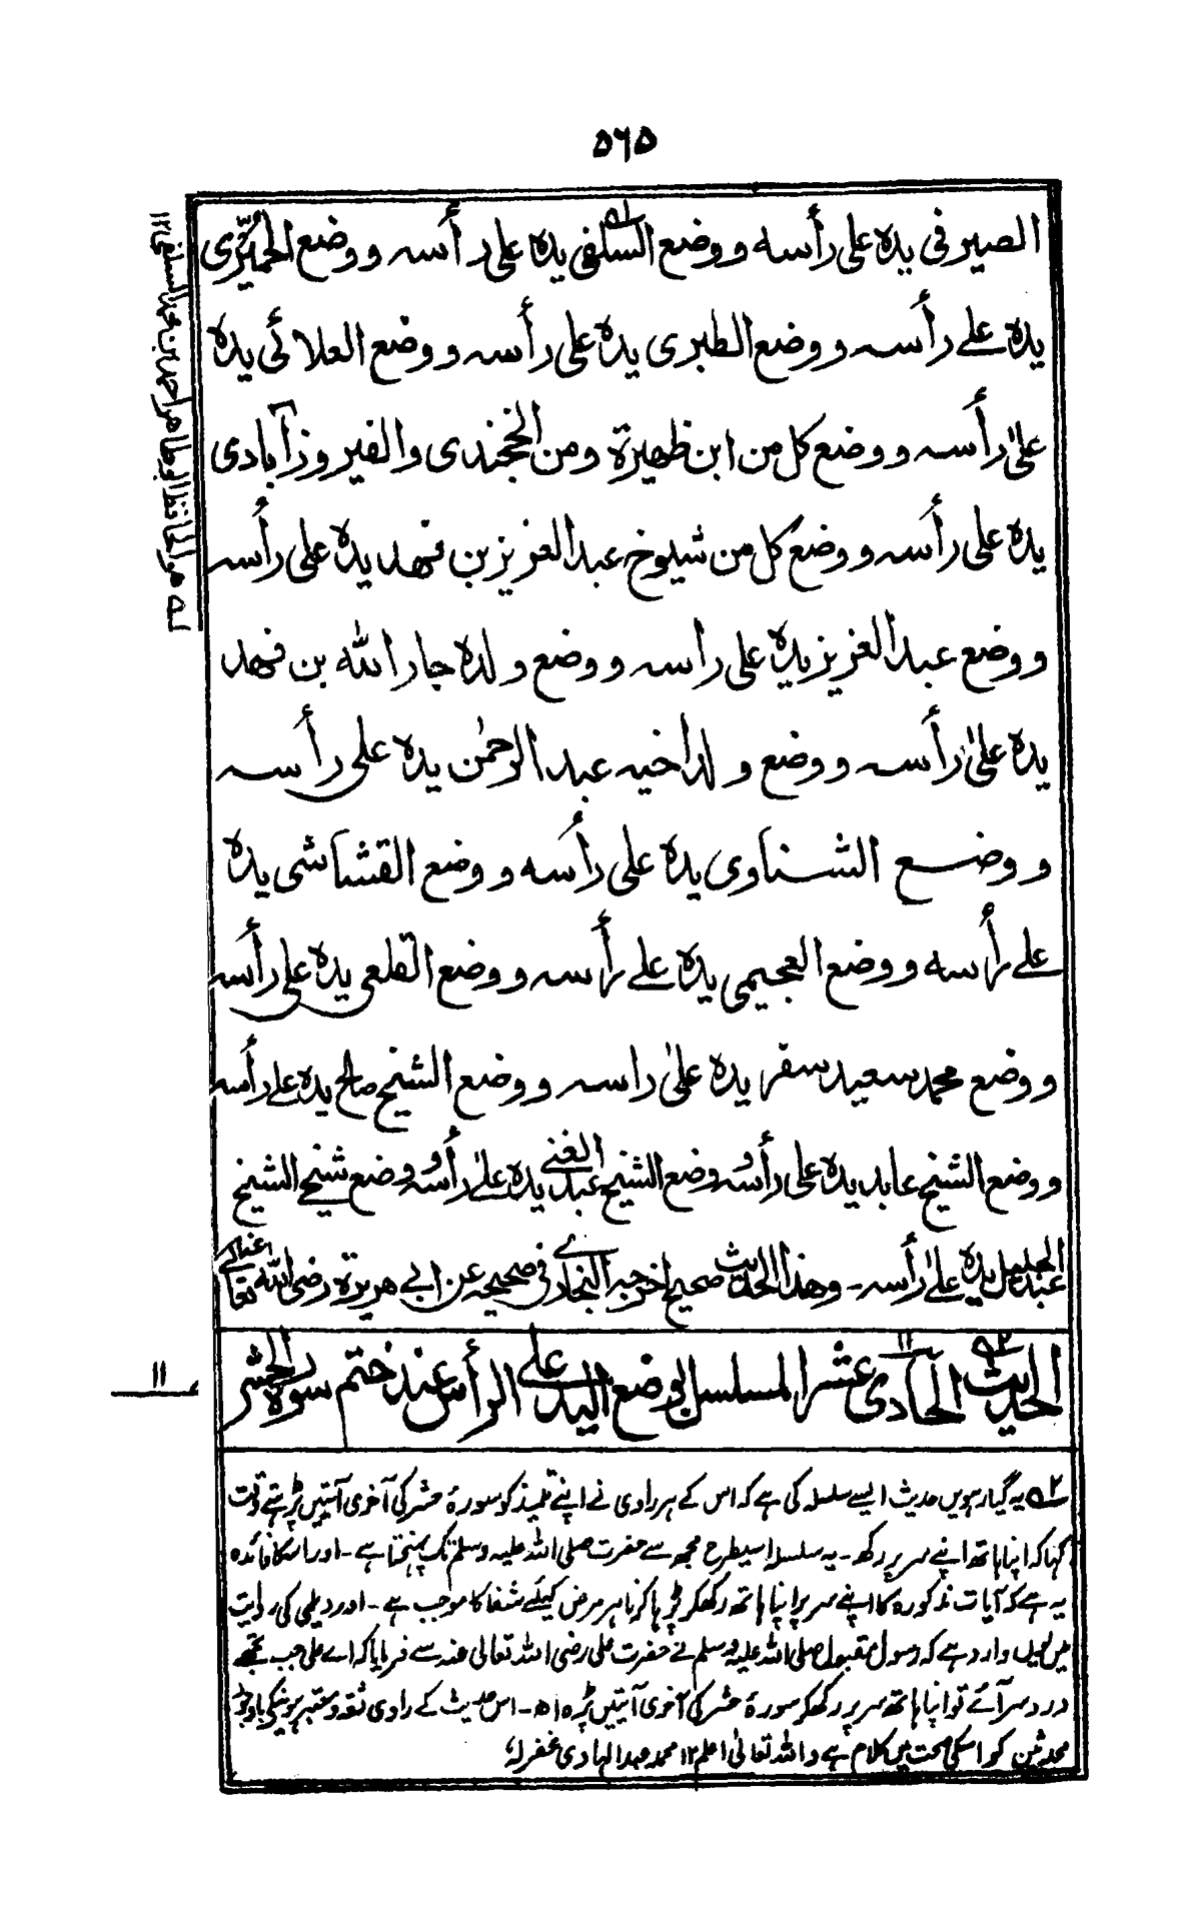 ۵۶۵
الصيرفى يده على رأسه ووضع السلفى يده على رأسه ووضع الحميّرى
يده علے رأسه ووضع الطبرى يده على رأسه ووضع العلائى يده
علىٰ رأسه ووضع كل من ابن ظهيرة ومن الخجندى والفيروزآبادى
يده على رأسه ووضع كل من شيوخ عبد العزيز بن فهد يده على رأسه
ووضع عبد العزيز يده على راسه ووضع ولده جار الله بن فهد
يده علىٰ رأسه ووضع ولد اخيه عبد الرحمٰن يده على رأسه
ووضع الشناوى يده على رأسه ووضع القشاشى يده
علے رأسه ووضع العجيمى يده علے رأسه ووضع القلعى يده على رأسه
ووضع محمد سعيد سفر يده علىٰ راسه ووضع الشيخ صالح يده علے رأسه
ووضع الشيخ عابد يده على رأسه ووضع الشيخ عبد الغنے يده علےٰ رأسه ووضع شيخے الشيخ
عبد الجليل يده علےٰ رأسه ـ وهذا الحديث صحيح اخرجه البخارے فى صحيحه عن ابى هريرة رضى الله تعالےٰ عنه
الحديث ۲ الحادى عشر ۱۱ المسلسل بوضع اليد علے الرأس عند ختم سورة الحشر
۱۱
۲ یہ گیارہویں حدیث ایسے سلسلہ کی ہے کہ اس کے ہر راوی نے اپنے تلمیذ کو سورۂ حشر کی آخری آیتیں پڑہتے وقت
کہا کہ اپنا ہاتھ اپنے سر پر رکھ ۔ یہ سلسلہ اسیطرح مجھ سے حضرت صلی اللہ علیہ وسلم تک پہنچتا ہے ۔ اور اسکا فائدہ
یہ ہے کہ آیات مذکورہ کا اپنے سر پر اپنا ہاتھ رکھکر پڑہا کرنا ہر مرض کیلئے شفا کا موجب ہے ۔ اور دیلمی کی روایت
میں یوں وارد ہے کہ رسول مقبول صلی اللہ علیہ وسلم نے حضرت علی رضی اللہ تعالی عنہ سے فرمایا کہ اے علی جب تجھے
درد سر آئے تو اپنا ہاتھ سر پر رکھکر سورۂ حشر کی آخری آیتیں پڑہ اھ ۔ اس حدیث کے راوی ثقہ و معتبر ہونیکے باوجود
محدثین کو اسکی صحت میں کلام ہے واللہ تعالیٰ اعلم ۱۲ محمد عبد الہادی غفرلہ
له هو الحافظ ابو طاهر احمد بن محمد السلفى ۱۲